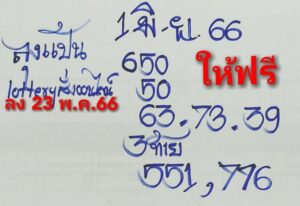 1 มิ.ย. 66
ลุงแป๊น
lotteryสั่งออนไลน์
ลง 23 พ.ค.66
ให้ฟรี
650
50
63.73.39
3 ท้าย
551,776